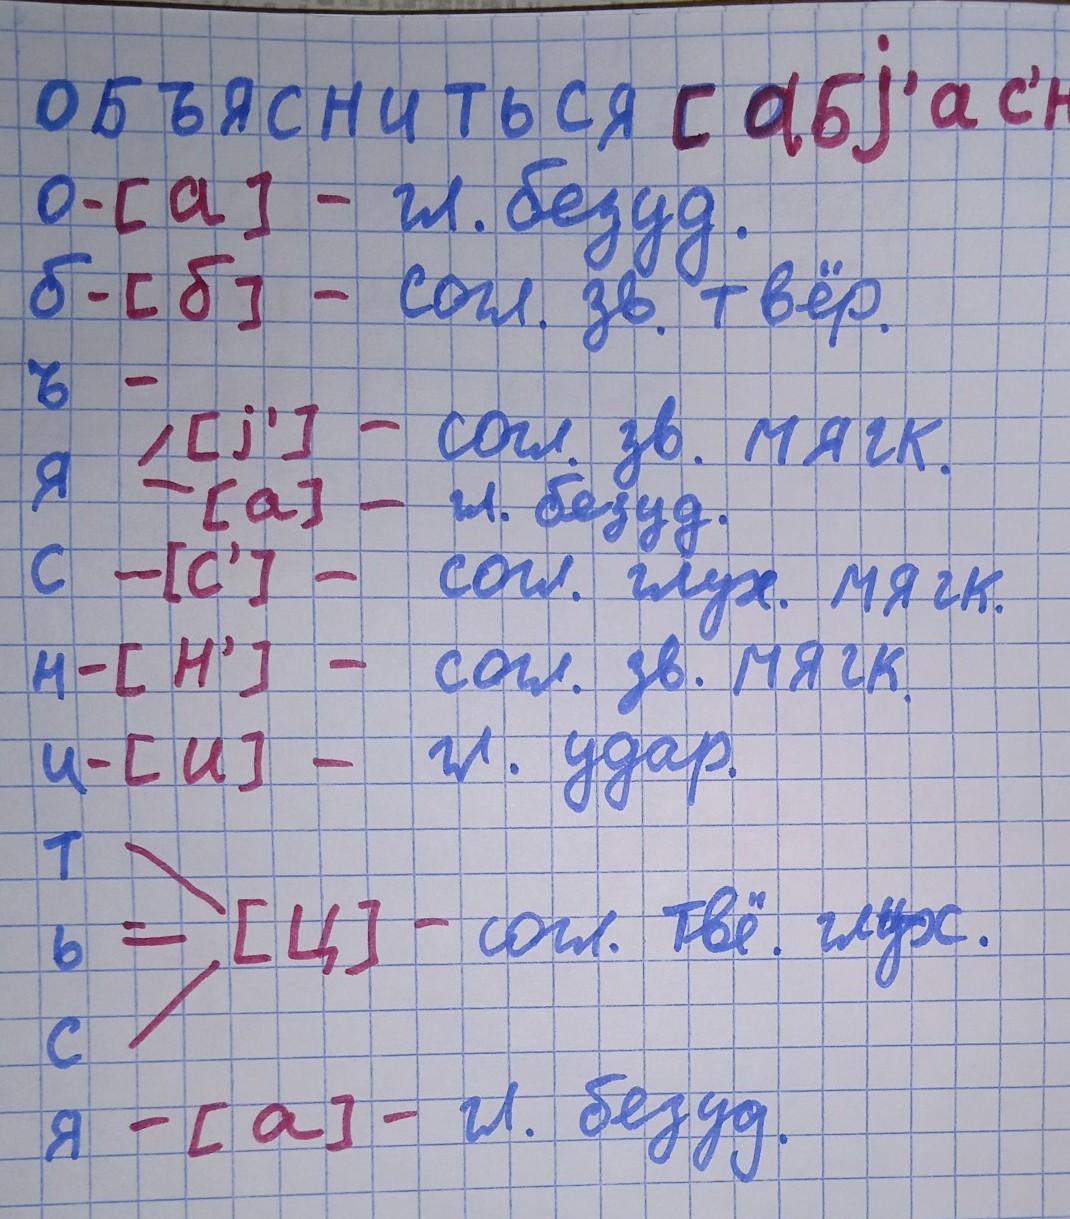 объясниться [абj'ас'н
о-[а] - гл. безуд.
б-[б] - согл. зв. твёр.
ъ -
[j'] - согл. зв. мягк.
я
[а] - гл. безуд.
с -[с'] - согл. глух. мягк.
н-[н'] - согл. зв. мягк.
и-[и] - гл. удар.
т
ь = [ц] - согл. твё. глух.
с
я -[а]- гл. безуд.